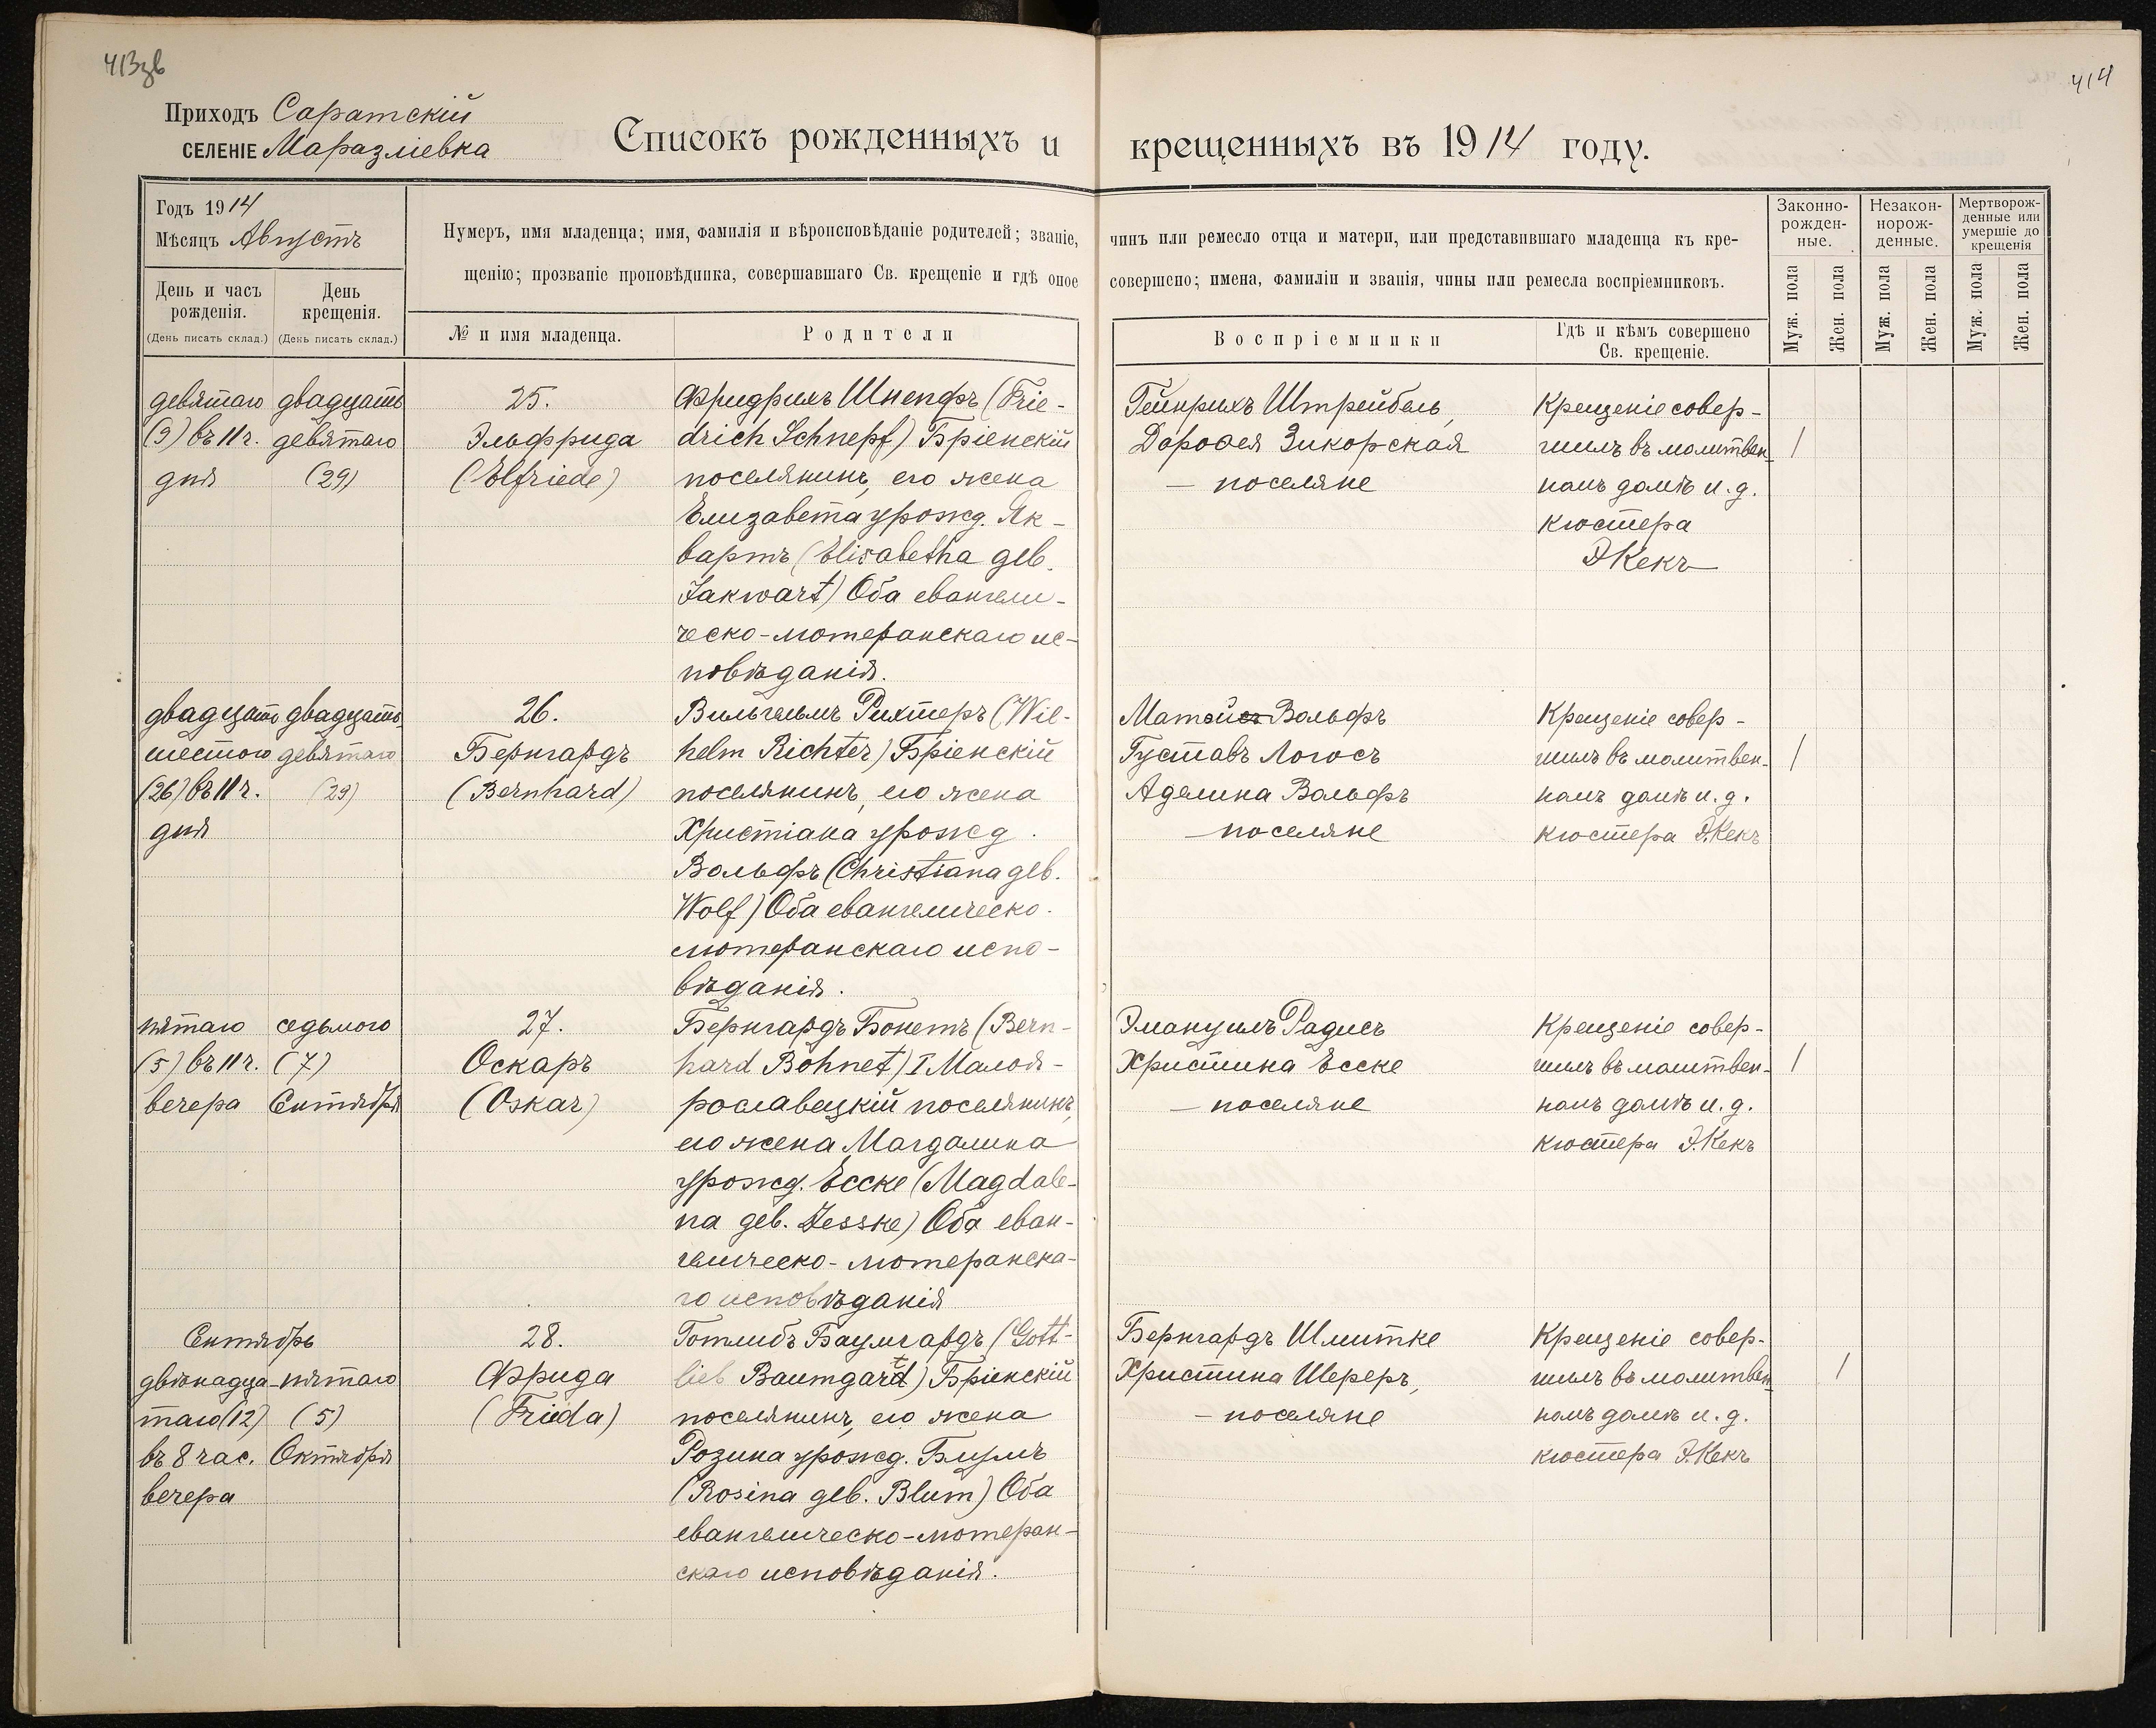 413зв
414
Приходъ Саратскій
СЕЛЕНІЕ Маразліевка
Списокъ рожденныхъ и крещенныхъ въ 1914 году.
Годъ 1914
Мѣсяцъ Августъ
День и часъ рожденія.
(День писать склад.)
День крещенія.
(День писать склад.)
Нумеръ, имя младенца; имя, фамилія и вѣроисповѣданіе родителей; званіе, чинъ или ремесло отца и матери, или представившаго младенца къ кре-
щенію; прозваніе проповѣдника, совершавшаго Св. крещеніе и гдѣ оное совершено; имена, фамиліи и званія, чины или ремесла воспріемниковъ.
№ и имя младенца.
Родители
Воспріемники
Гдѣ и кѣмъ совершено
Св. крещеніе.
Законно-
рожден-
ные.
Незакон-
норож-
денные.
Мертворож-
денные или
умершіе до
крещенія
Муж. пола
Жен. пола
Муж. пола
Жен. пола
Муж. пола
Жен. пола
девятаго
(9) въ 11 ч.
дня
двадцать
девятаго
(29)
25.
Эльфрида
(Elfriede)
Фридрихъ Шнепфъ (Frie-
drich Schnepf) Бріенскій
поселянинъ, его жена
Елизавета урожд. Як-
вартъ (Elisabetha geb.
Jakwart) Оба евангели-
ческо-лютеранскаго ис-
повѣданія.
Гейнрихъ Штрейбель,
Дороѳея Зикорская
— поселяне
Крещеніе совер-
шилъ въ молитвен-
номъ домѣ и. д.
кюстера
Э Кекъ
1
двадцать
шестого
(26) въ 11 ч.
дня
двадцать
девятаго
(29)
26.
Бернгардъ
(Bernhard)
Вильгельмъ Рихтеръ (Wil-
helm Richter) Бріенскій
поселянинъ, его жена
Христіана урожд.
Вольфъ (Christiana geb.
Wolf) Оба евангелическо-
лютеранскаго испо-
вѣданія.
Вольфъ
Густавъ Логосъ
Аделина Вольфъ
— поселяне
Крещеніе совер-
шилъ въ молитвен-
номъ домѣ и. д.
кюстера Э. Кекъ
1
пятаго
(5) въ 11 ч.
вечера
седьмого
(7)
Сентября
27.
Оскаръ
(Oskar)
Бернгардъ Бонетъ (Bern-
hard Bohnet) I Малоя-
рославецкій поселянинъ,
его жена Магдалина
урожд. Еске (Magdale-
na geb. Jesske) Оба еван-
гелическо-лютеранска-
го исповѣданія
Эмануилъ Радисъ
Христина Ееске
— поселяне
Крещеніе совер-
шилъ въ молитвен-
номъ домѣ и. д.
кюстера Э. Кекъ
1
Сентябрь
двѣнадца-
таго (12)
въ 8 час.
вечера
пятаго
(5)
Октября
28.
Фрида
(Frieda)
Готлибъ Баумгардъ (Gott-
lieb Baumgardt) Бріенскій
поселянинъ, его жена
Розина урожд. Блумъ
(Rosina geb. Blum) Оба
евангелическо-лютеран-
скаго исповѣданія.
Бернгардъ Шлитке
Христина Шереръ,
— поселяне
Крещеніе совер-
шилъ въ молитвен-
номъ домѣ и. д.
кюстера Э. Кекъ
1